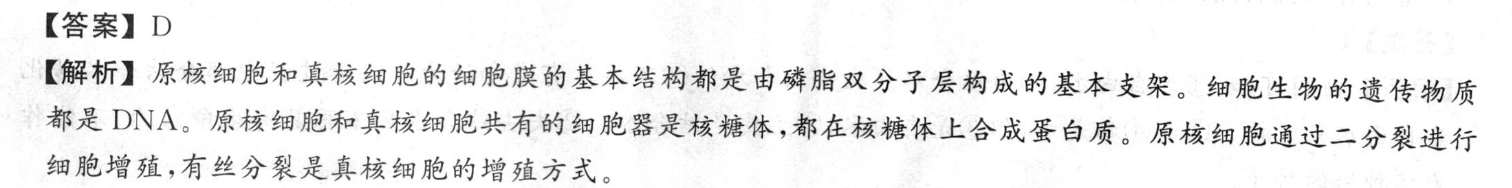 【答案】D
【解析】原核细胞和真核细胞的细胞膜的基本结构都是由磷脂双分子层构成的基本支架。细胞生物的遗传物质
都是 DNA。原核细胞和真核细胞共有的细胞器是核糖体,都在核糖体上合成蛋白质。原核细胞通过二分裂进行
细胞增殖,有丝分裂是真核细胞的增殖方式。